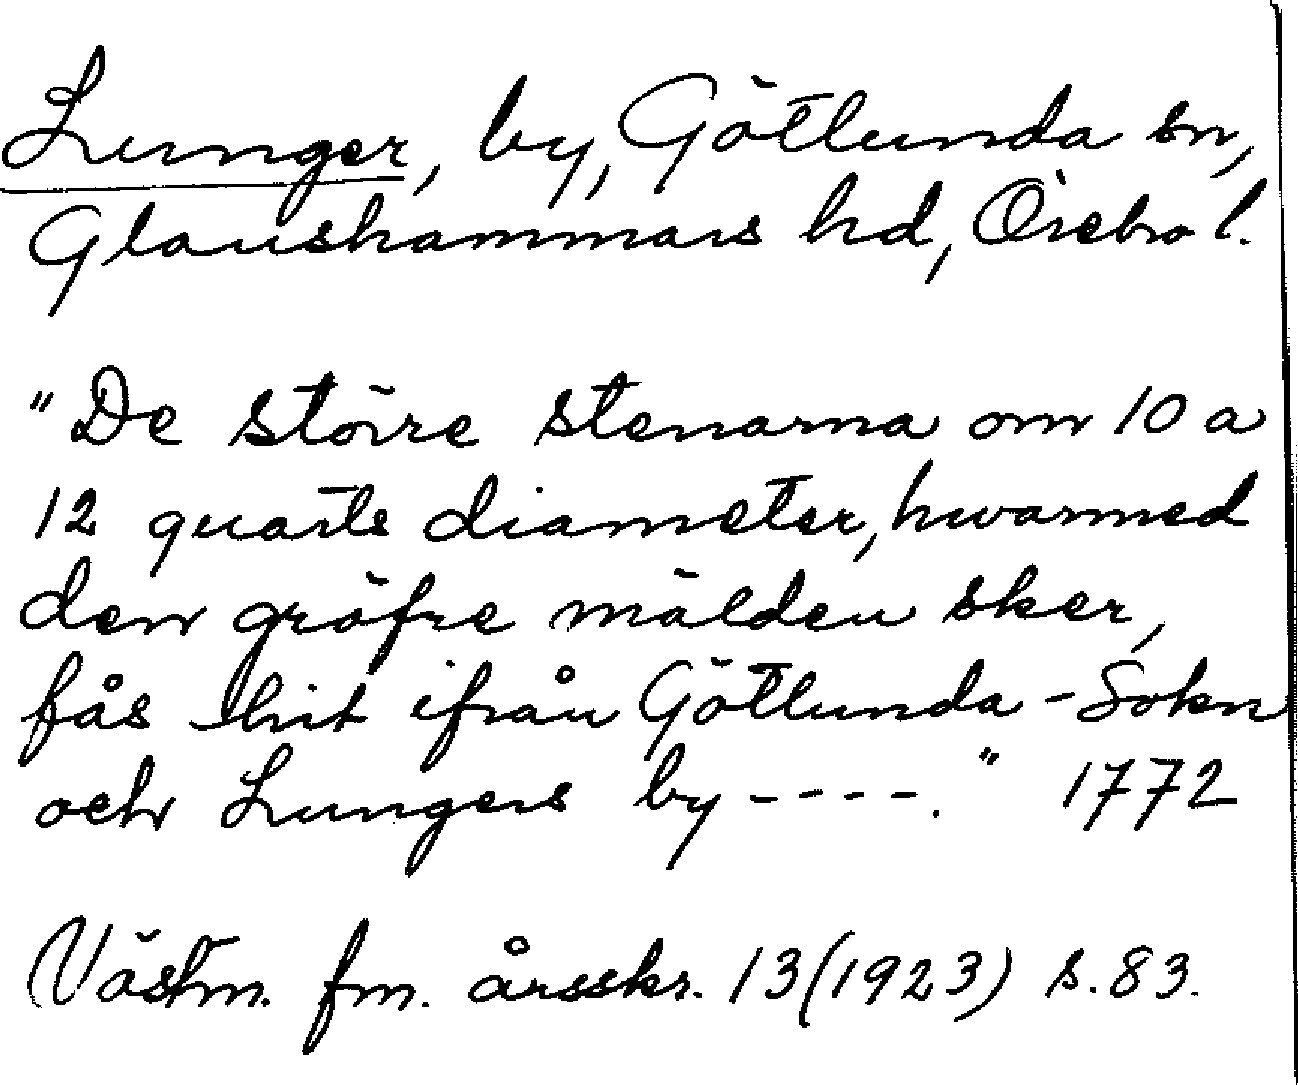 Lunger, by, Götlunda sn,
Glanshammars hd, Örebro l.
"De större stenarna om 10 a
12 quarts diameter, hwarmed
den gröfre mälden sker,
fås hit ifrån Götlunda-Sokn
och Lungers by ----." 1772
Västm. fm. årsskr. 13 (1923) s. 83.